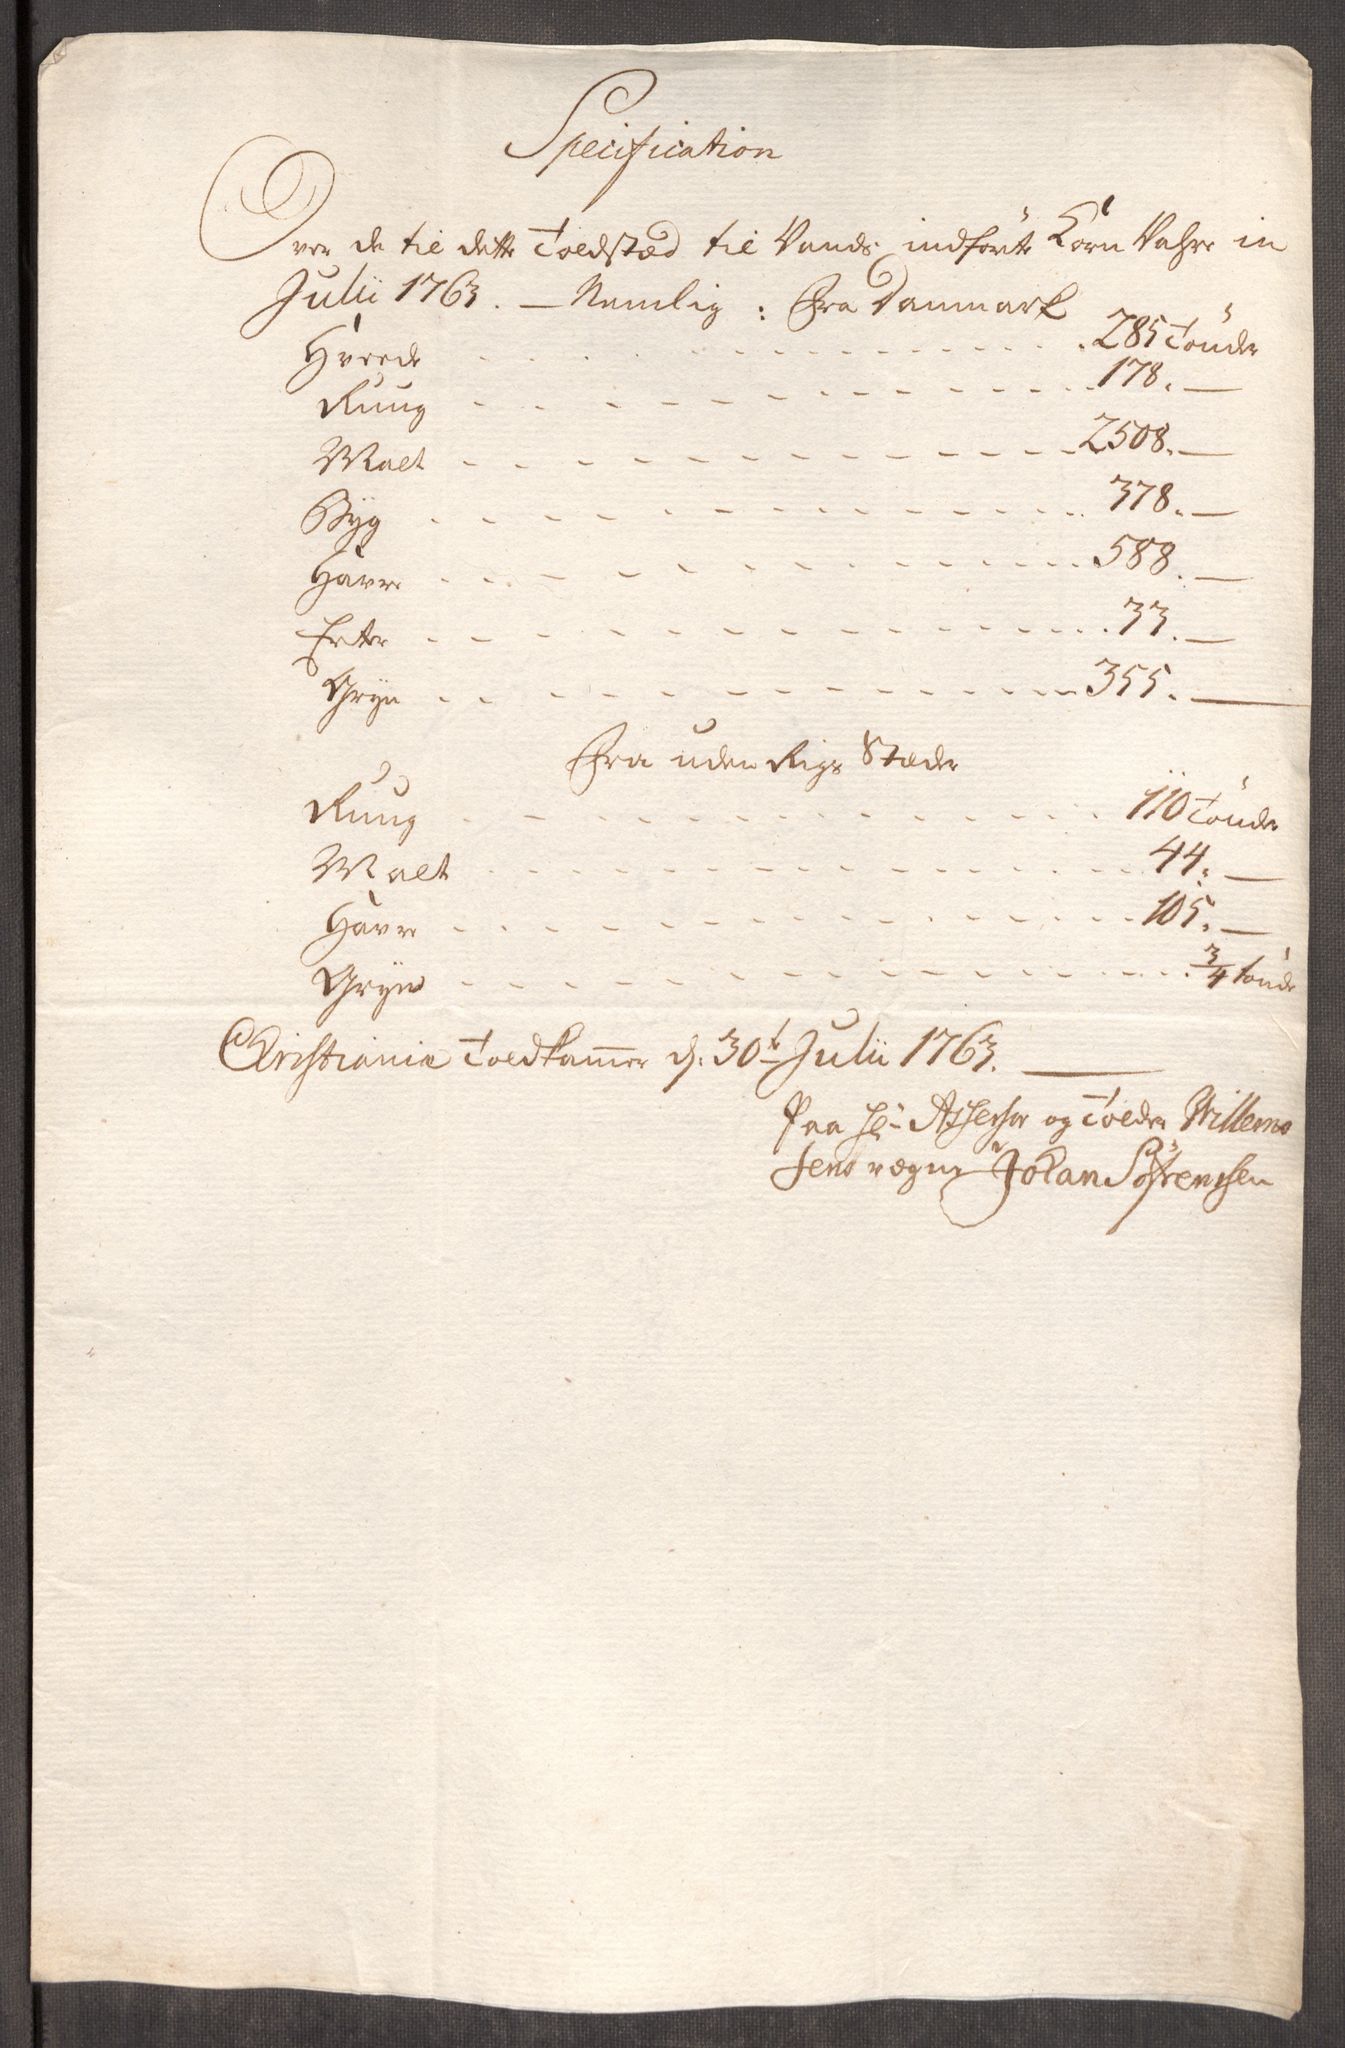 Specification
Over de til dette Toldstæd til Vands indförte Korn Vahre in
Julii 1763. — Nemlig: fra Danmark
Hvede - - - 285 Tönder
Ruug - - - 178. —
Malt - - - 2508. —
Byg - - - 378. —
Havre - - - 588. —
Erter - - - 33. —
Gryn - - - 355. —
Fra uden Rigs Stæder
Ruug - - - 110 Tönder
Malt - - - 44. —
Havre - - - 105. —
Gryn - - - 3/4 tönde
Christiania Toldkammer d. 30t Julii 1763. —
Paa Hr Assessor og Tolder Willem
sens vegne Johan Sörensen